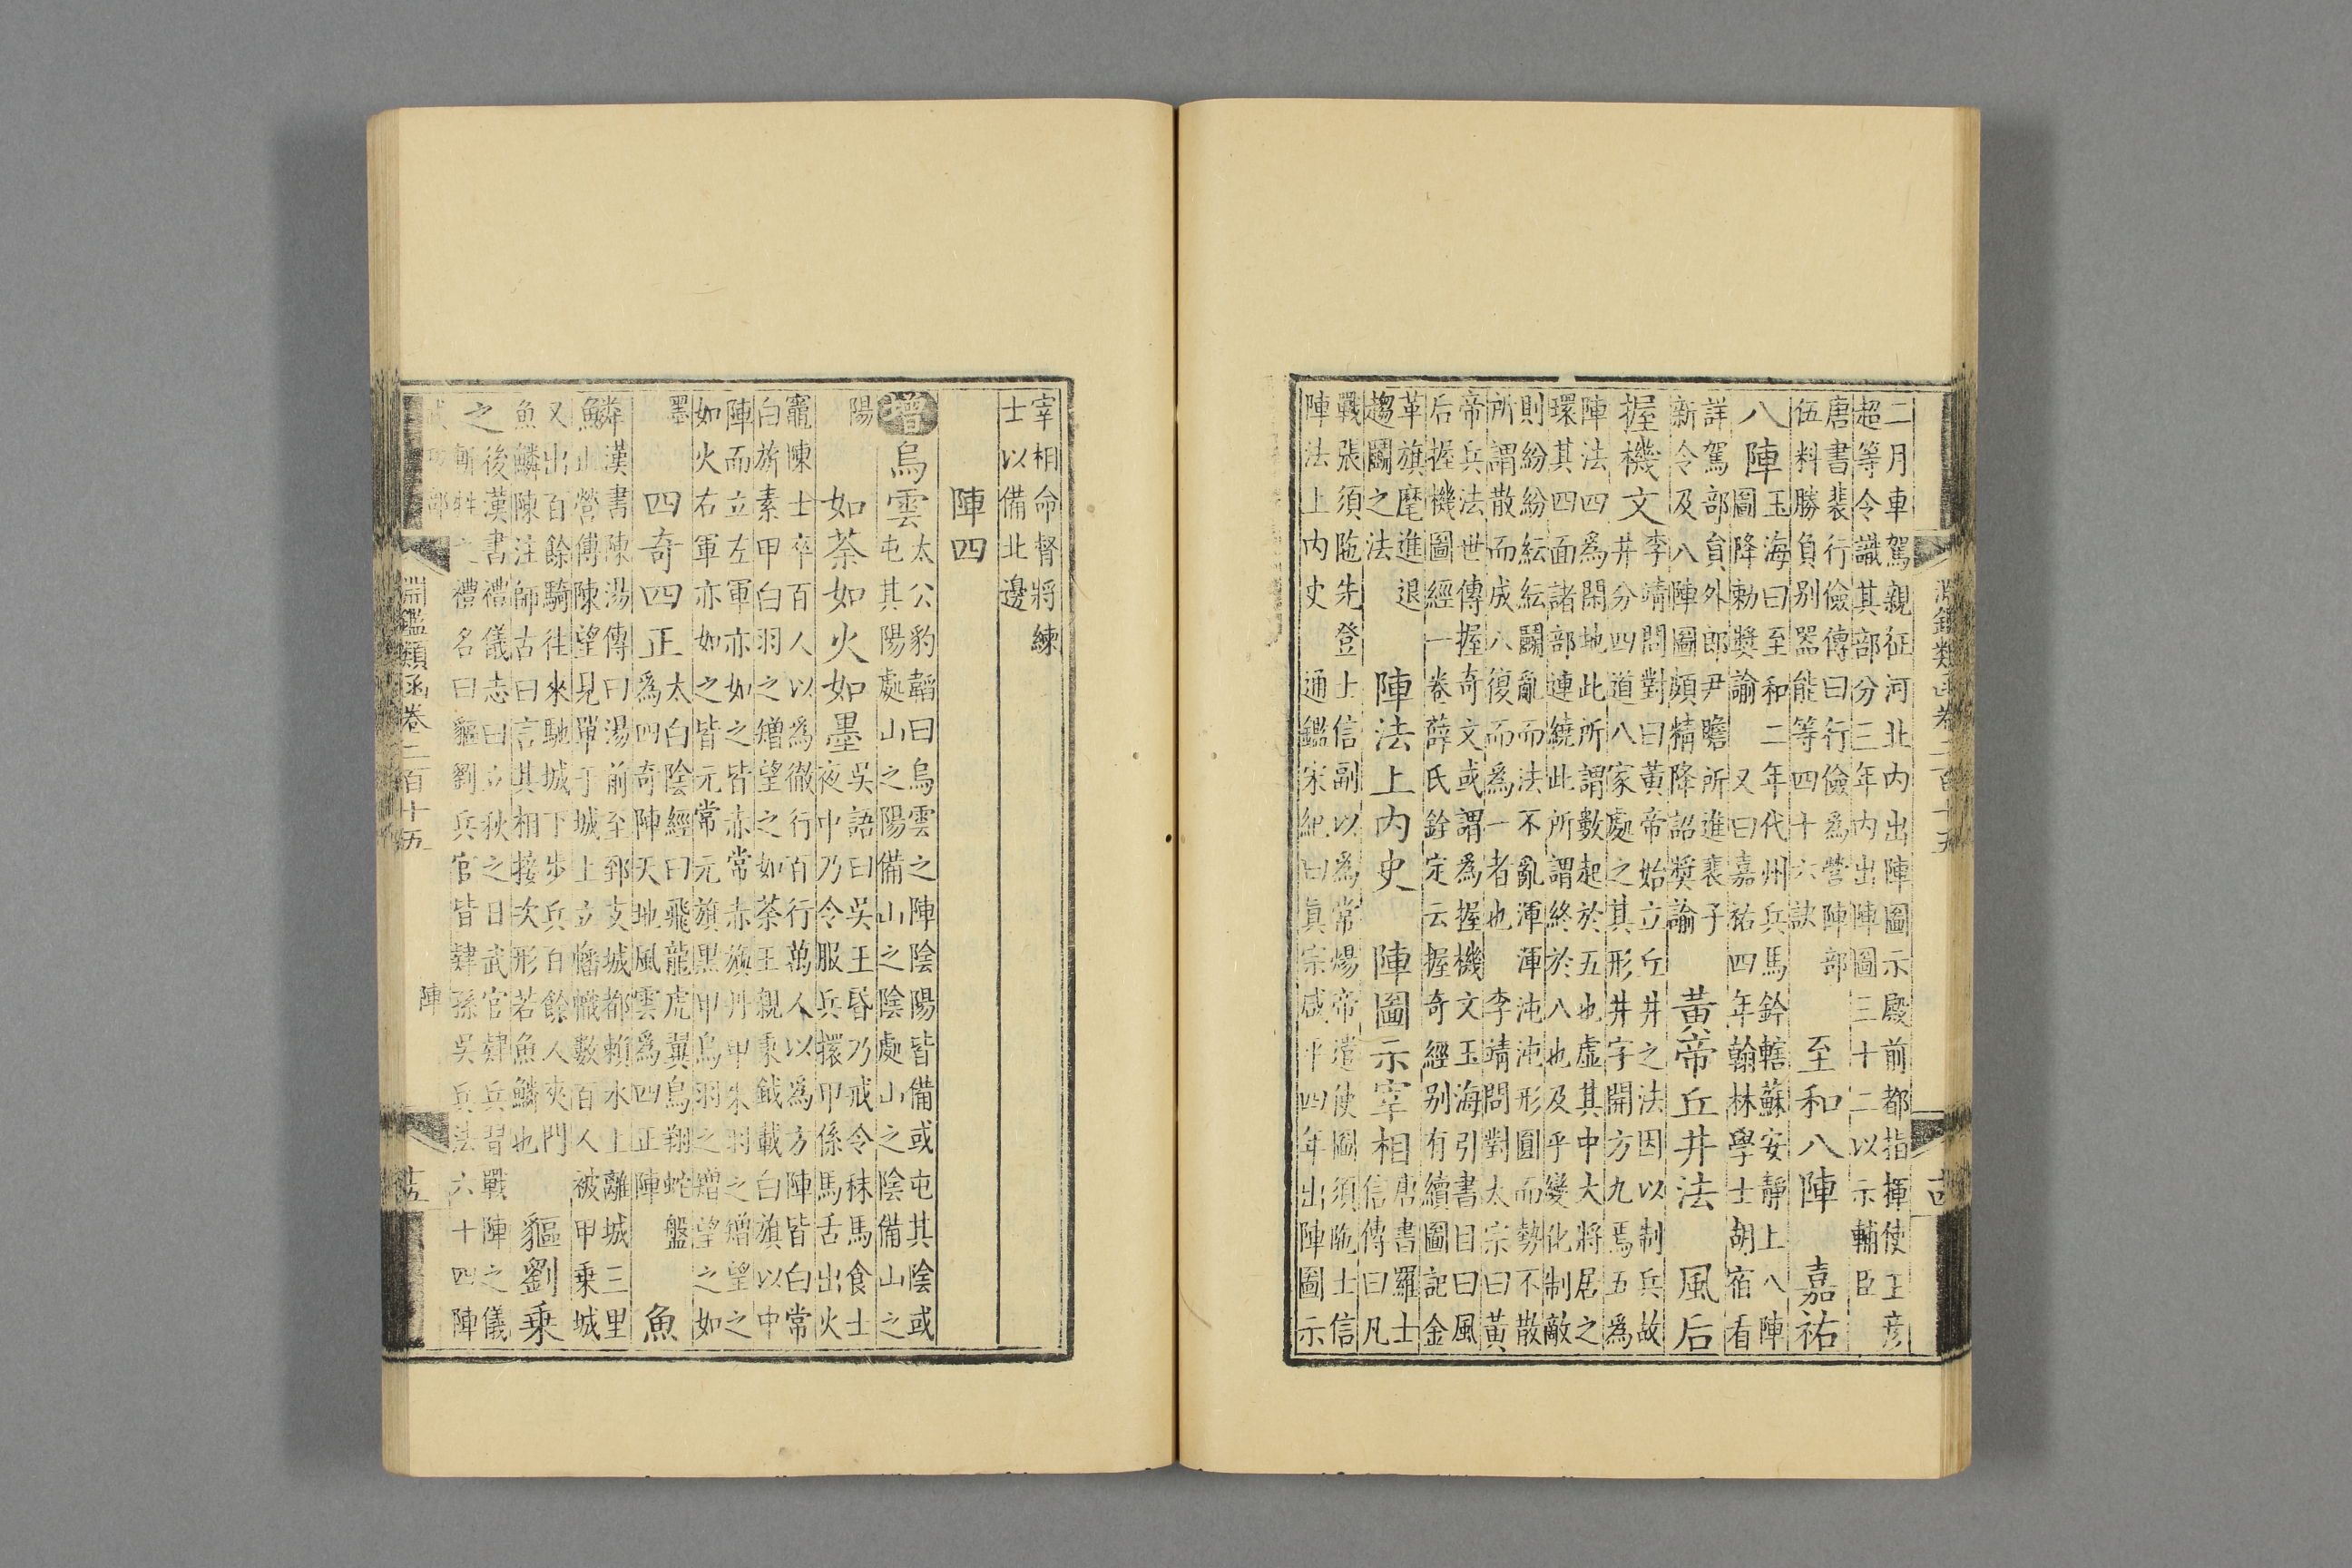 二月車駕親征河北内出陣圖示殿前都指揮使王彦
超等令識其部分三年内出陣圖三十二以示輔臣
唐書裴行儉傳曰行儉為營陣部
伍料勝負别器能等四十六訣
至和八陣
嘉祐
八陣
玉海曰至和二年代州兵馬鈐轄蘇安靜上八陣
圖降勅奬諭　又曰嘉祐四年翰林學士胡宿看
詳駕部員外郎尹瞻所進裴子
新令及八陣圖頗精降詔奬諭
黄帝丘井法
風后
握機文
李靖問對曰黄帝始立丘井之法因以制兵故
井分四道八家處之其形井字開方九焉五為
陣法四為閑地此所謂數起於五也虚其中大將居之
環其四面諸部連繞此所謂終於八也及乎變化制敵
則紛紛紜紜鬬亂而法不亂渾渾沌沌形圓而勢不散
所謂散而成八復而為一者也　李靖問對太宗曰黄
帝兵法世傳握奇文或謂為握機文玉海引書目曰風
后握機圖經一卷薛氏銓定云握奇經别有續圖記金
革旗麾進退
趨鬬之法
陣法上内史
陣圖示宰相
唐書羅士
信傳曰凡
戰張須陁先登士信副以為常煬帝遣使圖須陁士信
陣法上内史　通鑑宋紀曰眞宗咸平四年出陣圖示
淵鑑類函卷二百十五
宰相命督將練
士以備北邊
陣四
增
烏雲
太公豹韜曰烏雲之陣陰陽皆備或屯其陰或
屯其陽處山之陽備山之陰處山之陰備山之
陽
如荼如火如墨
吳語曰吳王昏乃戒令秣馬食士
夜中乃令服兵擐甲係馬舌出火
竈陳士卒百人以為徹行百行萬人以為方陣皆白常
白旂素甲白羽之矰望之如荼王親秉鉞載白旗以中
陣而立左軍亦如之皆赤常赤旟丹甲朱羽之矰望之
如火右軍亦如之皆元常元旗黑甲烏羽之矰望之如
墨
四奇四正
太白陰經曰飛龍虎翼鳥翔蛇盤
為四奇陣天地風雲為四正陣
魚
鱗
漢書陳湯傳曰湯前至郅支城都賴水上離城三里
止營傅陳望見單于城上立幡幟數百人被甲乗城
又出百餘騎往來馳城下步兵百餘人夾門
魚鱗陳注師古曰言其相接次形若魚鱗也
貙劉乗
之
後漢書禮儀志曰立秋之日武官肄兵習戰陣之儀
斬牲之禮名曰貙劉兵官皆肄孫吳兵法六十四陣
淵鑑類函卷二百十五
陣